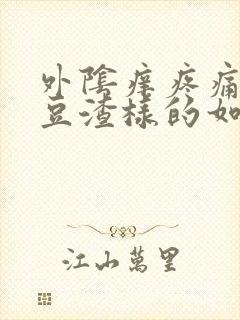 外陰痒疼痛
豆渣樣的如
江山萬里